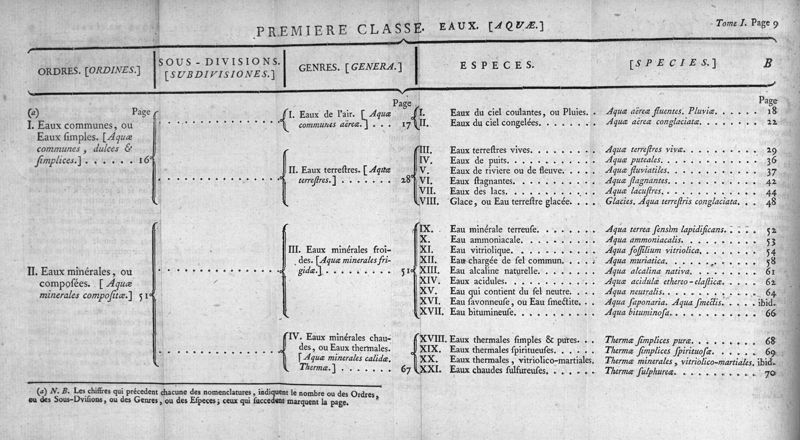 PREMIERE CLASSE. EAUX. [AQUÆ.] Tome I. Page 9
ORDRES. [ORDINES.] SOUS-DIVISIONS. [SUBDIVISIONES.] GENRES. [GENERA.] ESPECES. [SPECIES.] B
(a) Page
I. Eaux communes, ou
Eaux ſimples. [Aquæ
communes, dulces &
ſimplices.] . . . . . . 16
II. Eaux minérales, ou
compoſées. [Aquæ
minerales compoſitæ.] 51
Page
I. Eaux de l'air. [Aquæ
communes aëreæ.] . . . 17
II. Eaux terreſtres. [Aquæ
terreſtres.] . . . . . . . 28
III. Eaux minérales froi-
des. [Aquæ minerales fri-
gidæ.] . . . . . . . . 51
IV. Eaux minérales chau-
des, ou Eaux thermales.
[Aquæ minerales calidæ.
Thermæ.] . . . . . . . 67
Page
I. Eaux du ciel coulantes, ou Pluies. . Aquæ aëreæ fluentes. Pluviæ. . . . . 18
II. Eaux du ciel congelées. . . . . . . . Aquæ aëreæ conglaciatæ. . . . . . 22
III. Eaux terreſtres vives. . . . . . . . . Aquæ terreſtres vivæ. . . . . . . 29
IV. Eaux de puits. . . . . . . . . . . . Aquæ puteales. . . . . . . . . 36
V. Eaux de riviere ou de fleuve. . . . . Aquæ fluviatiles. . . . . . . . . 37
VI. Eaux ſtagnantes. . . . . . . . . . . Aquæ ſtagnantes. . . . . . . . . 42
VII. Eaux des lacs. . . . . . . . . . . . Aquæ lacuſtres. . . . . . . . . 44
VIII. Glace, ou Eau terreſtre glacée. . . . Glacies. Aqua terreſtris conglaciata. . . 48
IX. Eau minérale terreuſe. . . . . . . . Aqua terrea ſensìm lapidificans. . . . 52
X. Eau ammoniacale. . . . . . . . . . Aqua ammoniacalis. . . . . . . . 53
XI. Eau vitriolique. . . . . . . . . . . Aqua foſſilium vitriolica. . . . . . 54
XII. Eau chargée de ſel commun. . . . . . Aqua muriatica. . . . . . . . . 58
XIII. Eau alcaline naturelle. . . . . . . . Aqua alcalina nativa. . . . . . . 61
XIV. Eaux acidules. . . . . . . . . . . . Aquæ acidulæ ethereo-elaſticæ. . . . 62
XV. Eau qui contient du ſel neutre. . . . Aqua neutralis. . . . . . . . . 64
XVI. Eau ſavonneuſe, ou Eau ſmectite. . . Aqua ſaponaria. Aqua ſmectis. . . . ibid.
XVII. Eau bitumineuſe. . . . . . . . . . Aqua bituminoſa. . . . . . . . . 66
XVIII. Eaux thermales ſimples & pures. . . Thermæ ſimplices puræ. . . . . . 68
XIX. Eaux thermales ſpiritueuſes. . . . . . Thermæ ſimplices ſpirituoſæ. . . . . 69
XX. Eaux thermales, vitriolico-martiales. Thermæ minerales, vitriolico-martiales. ibid.
XXI. Eaux chaudes ſulfureuſes. . . . . . . Thermæ ſulphureæ. . . . . . . . 70
(a) N. B. Les chiffres qui précedent chacune des nomenclatures, indiquent le nombre ou des Ordres,
ou des Sous-Diviſions, ou des Genres, ou des Eſpeces; ceux qui ſuccedent marquent la page.